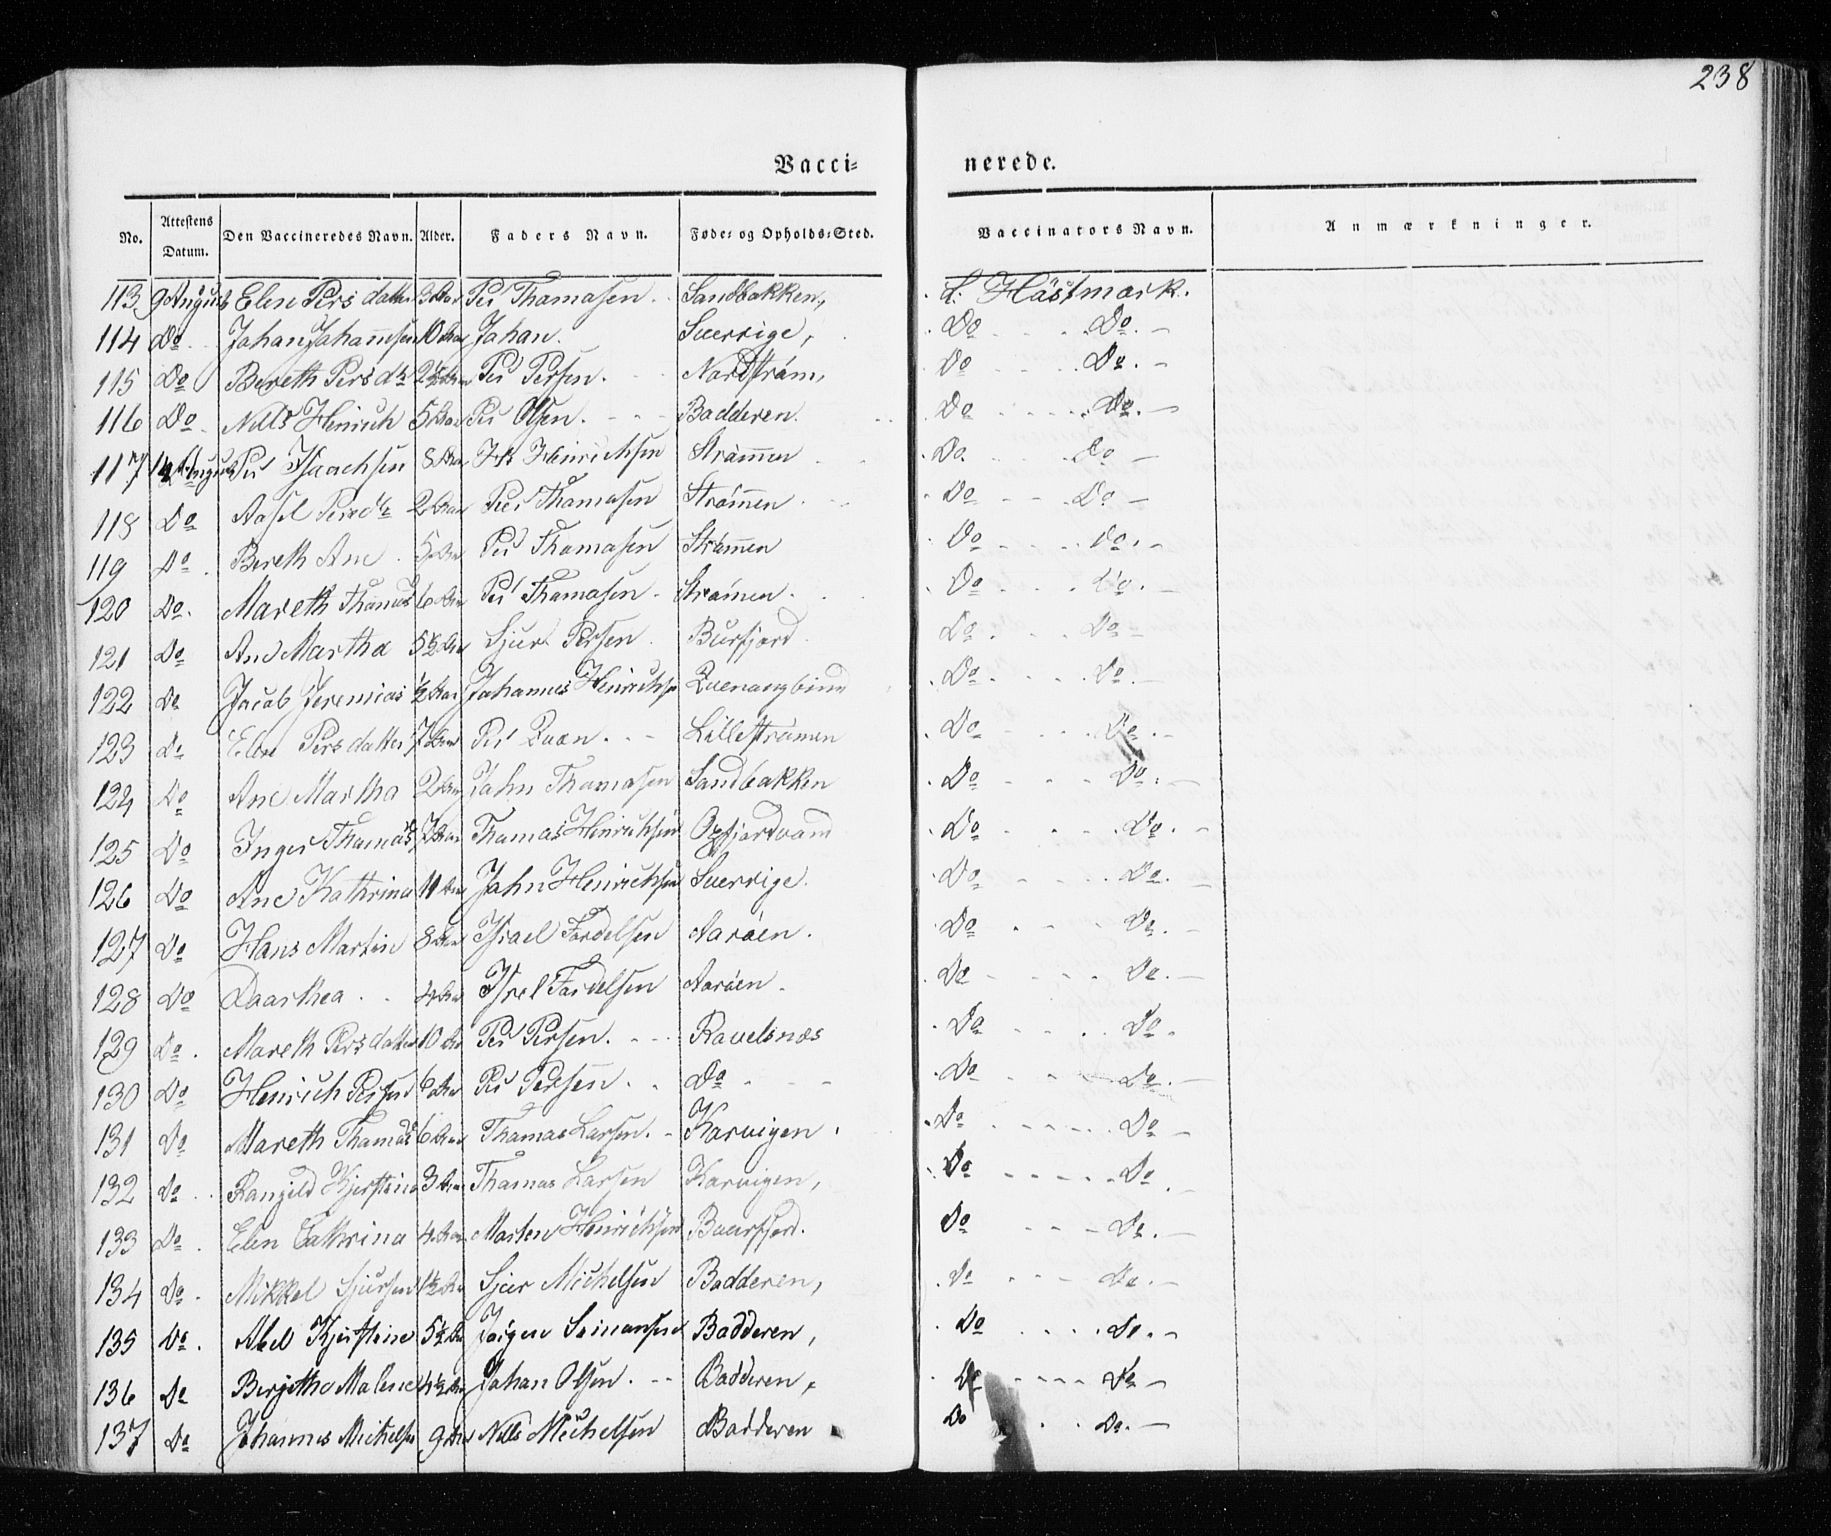 238
Vacci-
nerede.
No. Attestens Datum. Den Vaccineredes Navn. Alder. Faders Navn. Føde- og Opholds-Sted. Vaccinators Navn. Anmærkninger.
113 9 August Elen Persdatter 3 Per Thomasen Sandbakken, Hästmark.
114 Do Johan Johannsen 10 Johan. Sverrige, Do Do
115 Do Bereth Persdtr 2½ Per Persen. Nordstrøm, Do Do
116 Do Nils Heinrich 5 Per Olsen. Badderen. Do Do
117 August Per Isaachsen 8 Heinrichsen Strømmen Do Do
118 Do 2 Per Thomasen Strømen Do Do
119 Do Bereth Ane 5 Per Thomasen Strömen Do Do
120 Do. Mareth Thomas 6 Per Thomasen Strømen. Do Do.
121 Do Ane Martha 5½ Sjur Persen Burfjord Do Do
122 Do Jacob Jeremias ½ Johannes Heinrichsen Do Do
123 Do Elen Persdatter 7 Per Qvæn. Lillestrømen Do Do
124 Do Ane Martha 2 John Thomasen Sandbakken Do Do
125 Do Inger Thomas 7 Thomas Heinrichsen Do Do
126 Do Ane Kathrina 11 John Heinrichsen Sverrige. Do Do
127 Do Hans Martin 8 Israel Fordelsen Aaröen. Do Do
128 Do Daarthea 4 Isrel Fordelsen Aaröen. Do Do
129 Do. Mareth Persdatter 10 Per Persen. Ravelsnæs Do Do
130 Do Heinrich Persen 6 Per Persen. Do Do Do
131 Do Mareth Thomas 6 Thomas Larsen. Karvigen. Do Do
132 Do Rangild Kjerstina 3 Thomas Larsen Karvigen, Do Do
133 Do. Elen Cathrina 4 Morten Heinrichsen Baurfjord. Do Do
134 Do. Mikkel Sjursen 1½ Sjur Michelsen Badderen, Do Do
135 Do. Abel Kjerstine 5½ Jörgen Simonsen Badderen, Do Do
136 Do Berjithe Malene 4½ Johan Olsen. Badderen, Do Do
137 Do Johannes Mickelsen 9 Nils Michelsen Badderen Do Do